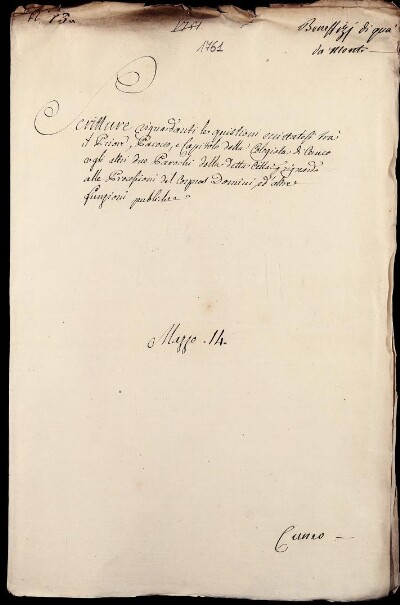 N. 13.
1741
Beneffizj di quà
da Monti
1761
Scritture riguardanti le quistioni eccittatesi tra
il Prior, Paroco, e Capitolo della Colegiata di Cuneo
e gli altri due Parochi della detta Città riguardo
alle Processioni del Corpus Domini, ed altre
funzioni publiche
Mazzo 14.
Cuneo